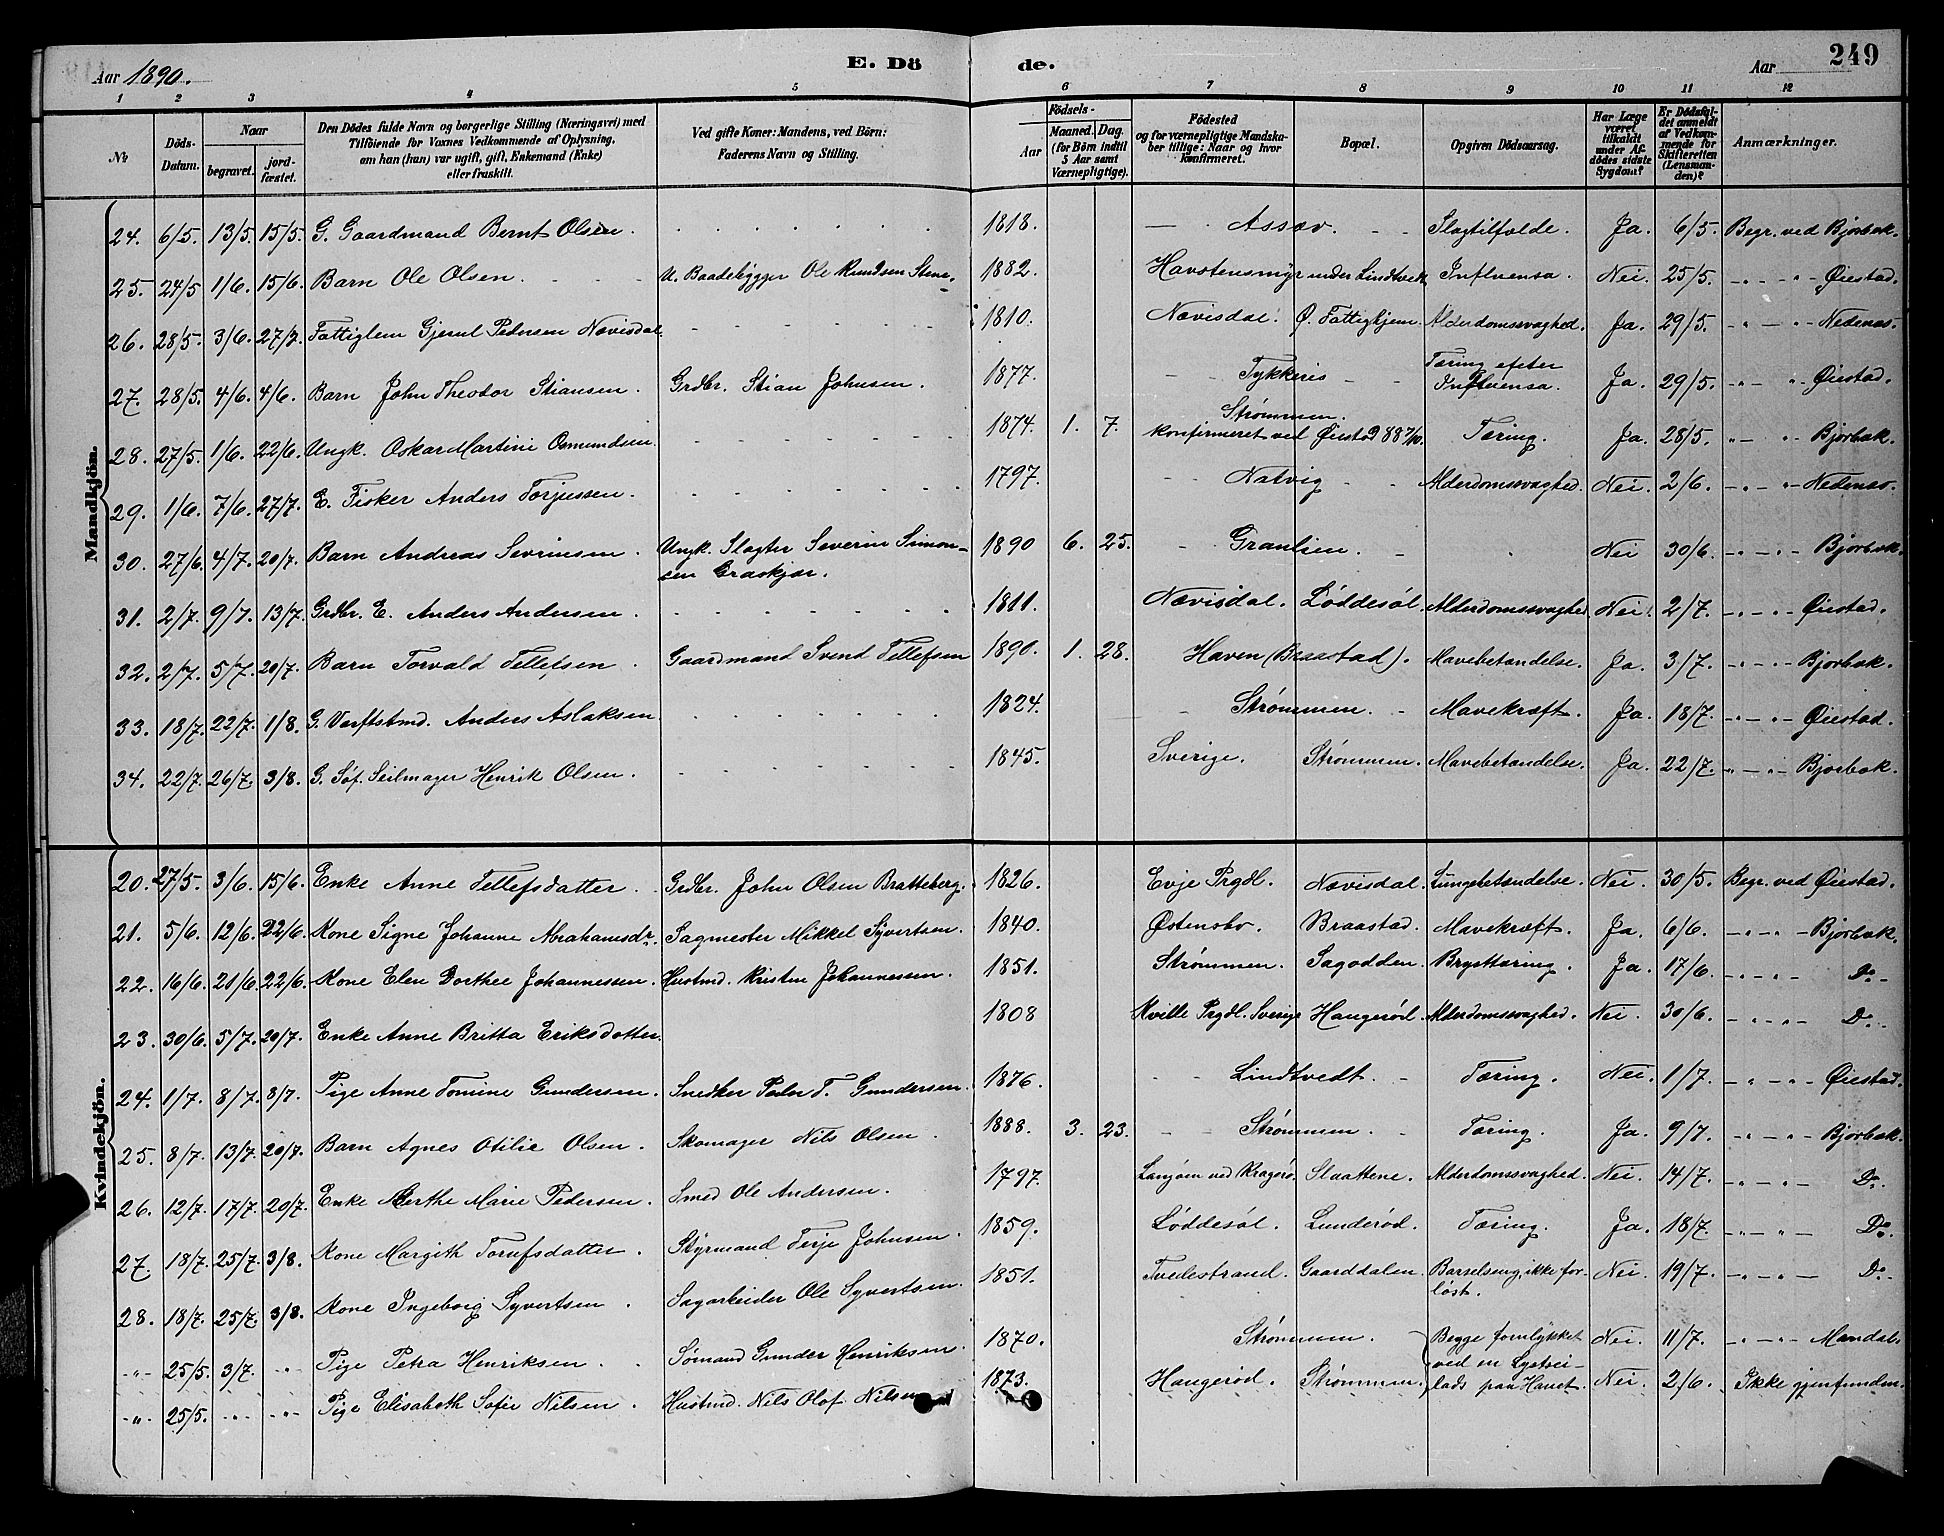 Aar 1890.
E. Döde.
Aar
249
1 2 3 4 5 6 7 8 9 10 11 12
№
Döds-Datum.
Naar
begravet.
jord-fæstet.
Den Dödes fulde Navn og borgerlige Stilling (Næringsvei) med Tilföiende for Voxnes Vedkommende af Oplysning, om han (hun) var ugift, gift, Enkemand (Enke) eller fraskilt.
Ved gifte Koner: Mandens, ved Börn: Faderens Navn og Stilling.
Födsels-
Aar
Maaned. Dag.
(for Börn indtil 5 Aar samt Værnepligtige).
Födested og for værnepligtige Mandskaber tillige: Naar og hvor konfirmeret.
Bopæl.
Opgiven Dödsaarsag.
Har Læge været tilkaldt under Afdödes sidste Sygdom?
Er Dödsfaldet anmeldt af Vedkommende for Skifteretten (Lensmanden)?
Anmærkninger.
Mandkjön.
24. 6/5. 13/5. 15/5. G. Gaardmand Bernt Olsen. 1818. Assæv. Slagtilfælde. Ja. 6/5. Begr. ved Bjorbæk.
25. 24/5 1/6. 15/6. Barn Ole Olsen. U. Baadebygger Ole Knudsen 1882. Havstensmyr under Lindtvedt. Influensa. Nei. 25/5. Øiestad.
26. 28/5. 3/6. 27/7. Fattiglem Gjerul Pedersen Nævisdal. 1810. Nævisdal. Ø. Fattighjem. Alderdomssvaghed. Ja. 29/5. Nedenæs.
27. 28/5. 4/6. 4/6. Barn John Theodor Stiansen. Grdbr. Stian Johnsen. 1877. Tykkeris Tæring efter Influensa. Ja. 29/5. Øiestad.
28. 27/5. 1/6. 22/6. Ungk. Oskar Martini Osmundsen. 1874. 1. 7. Strømmen. konfirmeret ved Øiestad 88 7/10. Tæring. Ja. 28/5. Bjorbæk.
29. 1/6. 7/6. 27/7. E. Fisker Anders Torjussen. 1797. Natvig Alderdomssvaghed. Nei. 2/6. Nedenæs.
30. 27/6. 4/7. 20/7. Barn Andreas Sevrinsen. Ungk. Slagter Severin Simonsen Graskjær. 1890 6. 25. Granlien. Nei 30/6. Bjorbæk.
31. 2/7. 9/7. 13/7. Grdbr. E. Anders Andersen. 1811. Nævisdal. Løddesøl. Alderdomssvaghed. Nei. 2/7. Øiestad.
32. 2/7. 5/7. 20/7. Barn Torvald Tellefsen. Gaardmand Svend Tellefsen 1890. 1. 28. Haven (Braastad). Mavebetændelse. Ja. 3/7. Bjorbæk.
33. 18/7. 22/7. 1/8. G. Værftstmd. Anders Aslaksen. 1824. Strømmen. Mavekræft. Ja. 18/7. Øiestad.
34. 22/7. 26/7. 3/8. G. Søf. Seilmager Henrik Olsen. 1845. Sverige. Strømmen. Mavebetændelse. Ja. 22/7. Bjorbæk.
Kvindekjön.
20. 27/5. 3/6. 15/6. Enke Anne Tellefsdatter. Grdbr. John Olsen Bratteberg. 1826. Evje Prgdl. Nævisdal. Lungebetændelse. Nei. 30/5. Begr. ved Øiestad.
21. 5/6. 12/6. 22/6. Kone Signe Johanne Abrahamsdr. Sagmester Mikkel Syvertsen. 1840. Østensbo. Braastad. Mavekræft. Ja. 6/6. Bjorbæk.
22. 16/6. 21/6. 22/6. Kone Elen Dorthee Johannessen. Husmd. Kristen Johannessen. 1851. Strømmen. Sagodden. Brysttæring. Ja. 17/6. Do.
23. 30/6. 5/7. 20/7. Enke Anne Britta Eriksdatter. 1808 Kville Prgdl. Sverige Haugerød. Alderdomssvaghed. Nei. 30/6. Do.
24. 1/7. 8/7. 8/7. Pige Anne Tomine Gundersen. Snedker Peder T. Gundersen. 1876. Lindtvedt. Tæring. Nei. 1/7. Øiestad.
25. 8/7. 13/7. 20/7. Barn Agnes Otilie Olsen. Skomager Nils Olsen. 1888. 3. 23. Strømmen. Tæring. Ja. 9/7. Bjorbæk.
26. 12/7. 17/7. 20/7. Enke Merthe Marie Pedersen. Smed Ole Andersen. 1797. Langøen ved Kragerø. Slaattene. Alderdomssvaghed. Nei. 14/7. Do.
27. 18/7. 25/7. 3/8. Kone Margith Torufsdatter. Styrmand Terje Johnsen. 1859. Løddesøl. Lunderød. Tæring. Ja. 18/7. Do.
28. 18/7. 25/7. 3/8. Kone Ingeborg Syvertsen. Sagarbeider Ole Syvertsen. 1851. Tvedestrand. Gaarddalen. Barselseng, ikke forløst. Nei. 19/7. Do.
25/5. 3/7. Pige Petra Henriksen. Sømand Gunder Henriksen. 1870. Strømmen. Begge forulykket Nei. 11/7. Mandal.
25/5. Pige Elisabeth Sofie Nilsen. Husmd. Nils Olof Nilsen 1873. Haugerød. Strømmen. ved en Lystseilads paa Havet. Nei. 2/6. Ikke gjenfunden.